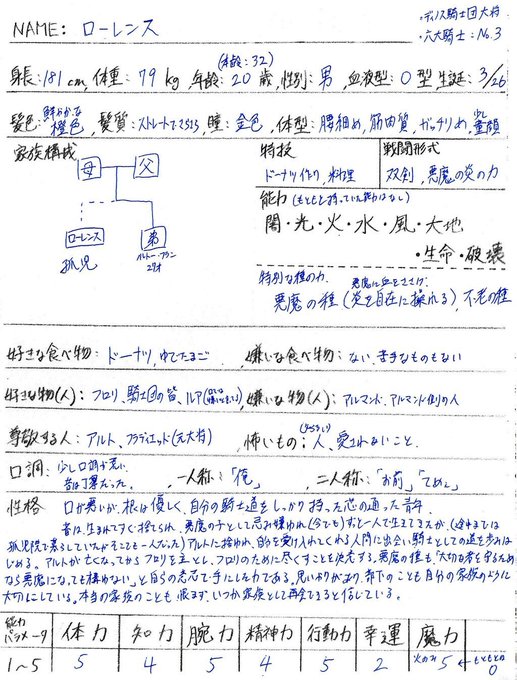 ・ディノス騎士団大将
・六大騎士：No.3
NAME： ローレンス
(本齢：32)
身長：181 cm, 体重：79 kg, 年齢：20 歳, 性別：男, 血液型：O 型, 生誕：3/26
髪色：鮮やかな橙色, 髪質：ストレートでさらさら, 瞳：金色, 体型：腰細め, 筋肉質, ガッチリめ, 少し童顔
家族構成
母 父
ローレンス 弟
孤児
27才
特技
ドーナツ作り, 料理
戦闘形式
双剣, 悪魔の炎の力
能力 (もともと持っていた能力はなし)
闇・光・火・水・風・大地
・生命・破壊
特別な種の力
悪魔の種 (悪魔に血をささげ 炎を自在に操れる), 不老の種
好きな食べ物：ドーナツ, ゆでたまご , 嫌いな食べ物：ない, 苦手なものもない
好きな物(人)：フロリ, 騎士団の皆, ルア , 嫌いな物(人)：アルマンド, アルマンド側の人
尊敬する人：アルト, (元大将) , 怖いもの：人, 愛されないこと.
口調：少し口調が荒い 昔は丁寧だった. , 一人称：「俺」 二人称：「お前」「てめぇ」
性格 口が悪いが, 根は優しく, 自分の騎士道をしっかり持った芯の通った青年.
昔は, 生まれてすぐ捨てられ, 悪魔の子として忌み嫌われ(今でも)ずっと一人で生きてきたが, (途中までは
孤児院で暮らしていたがそこでも一人だった) アルトに拾われ, 自分を受け入れてくれる人間に出会い騎士としての道を歩みは
じめる. アルトが亡くなってからフロリを主とし, フロリのために尽くすことを決意する. 悪魔の種も「大切な者を守るため
なら悪魔になっても構わない」と自らの意志で手にした力である. 思いやりがあり, 部下のことも自分の家族のように
大切にしている. 本当の家族のことも 恨まず, いつか家族として再会できると信じている.
能力パラメータ 体力 知力 腕力 精神力 行動力 幸運 魔力
1～5 5 4 5 4 5 2 火のみ 5 ←もともとの 0